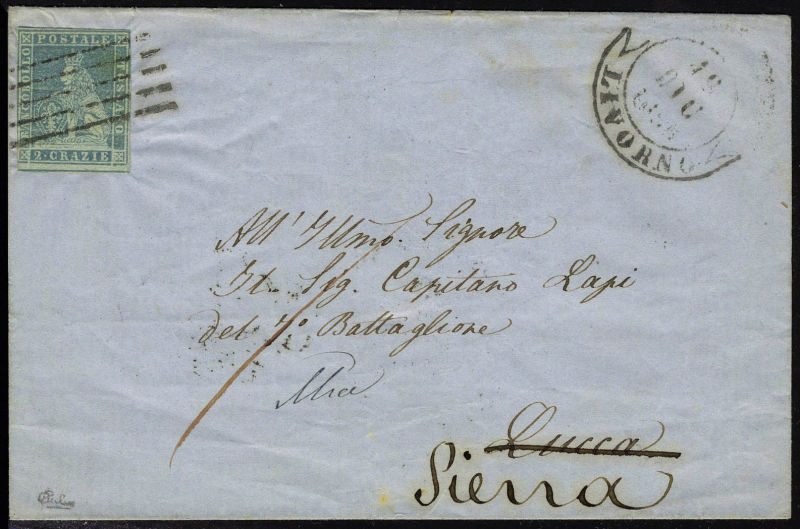 FRANCOBOLLO
POSTALE
TOSCANO
2·CRAZIE
LIVORNO
12
DIC
All' Illmo. Signore
Il Sig. Capitano Lapi
del 7° Battaglione
Lucca
Siena